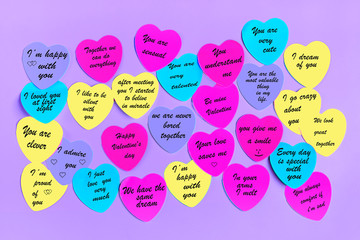 I'm happy
with
you
Together we
can do
everything
You are
sensual
You
understand
me
You are
very
cute
I dream
of
you
I loved you
at first
sight
I like
to be
silent
with
you
after meeting
you I started
to believe
in miracle
You
are
very
talented
You are
the most
valuable
thing
in my
life
Be mine
Valentine
I go crazy
about
you
We look
great
together
You are
clever
I admire
you
Happy
Valentine's
day
we are
never
bored
together
Your love
saves me
you give me
a smile
Every day
is special
with
you
I'm
proud
of
you
I just
love you
very
much
We have the
same
dream
I'm
happy
with
you
In your
arms
I melt
You always
comfort
if
I'm sad